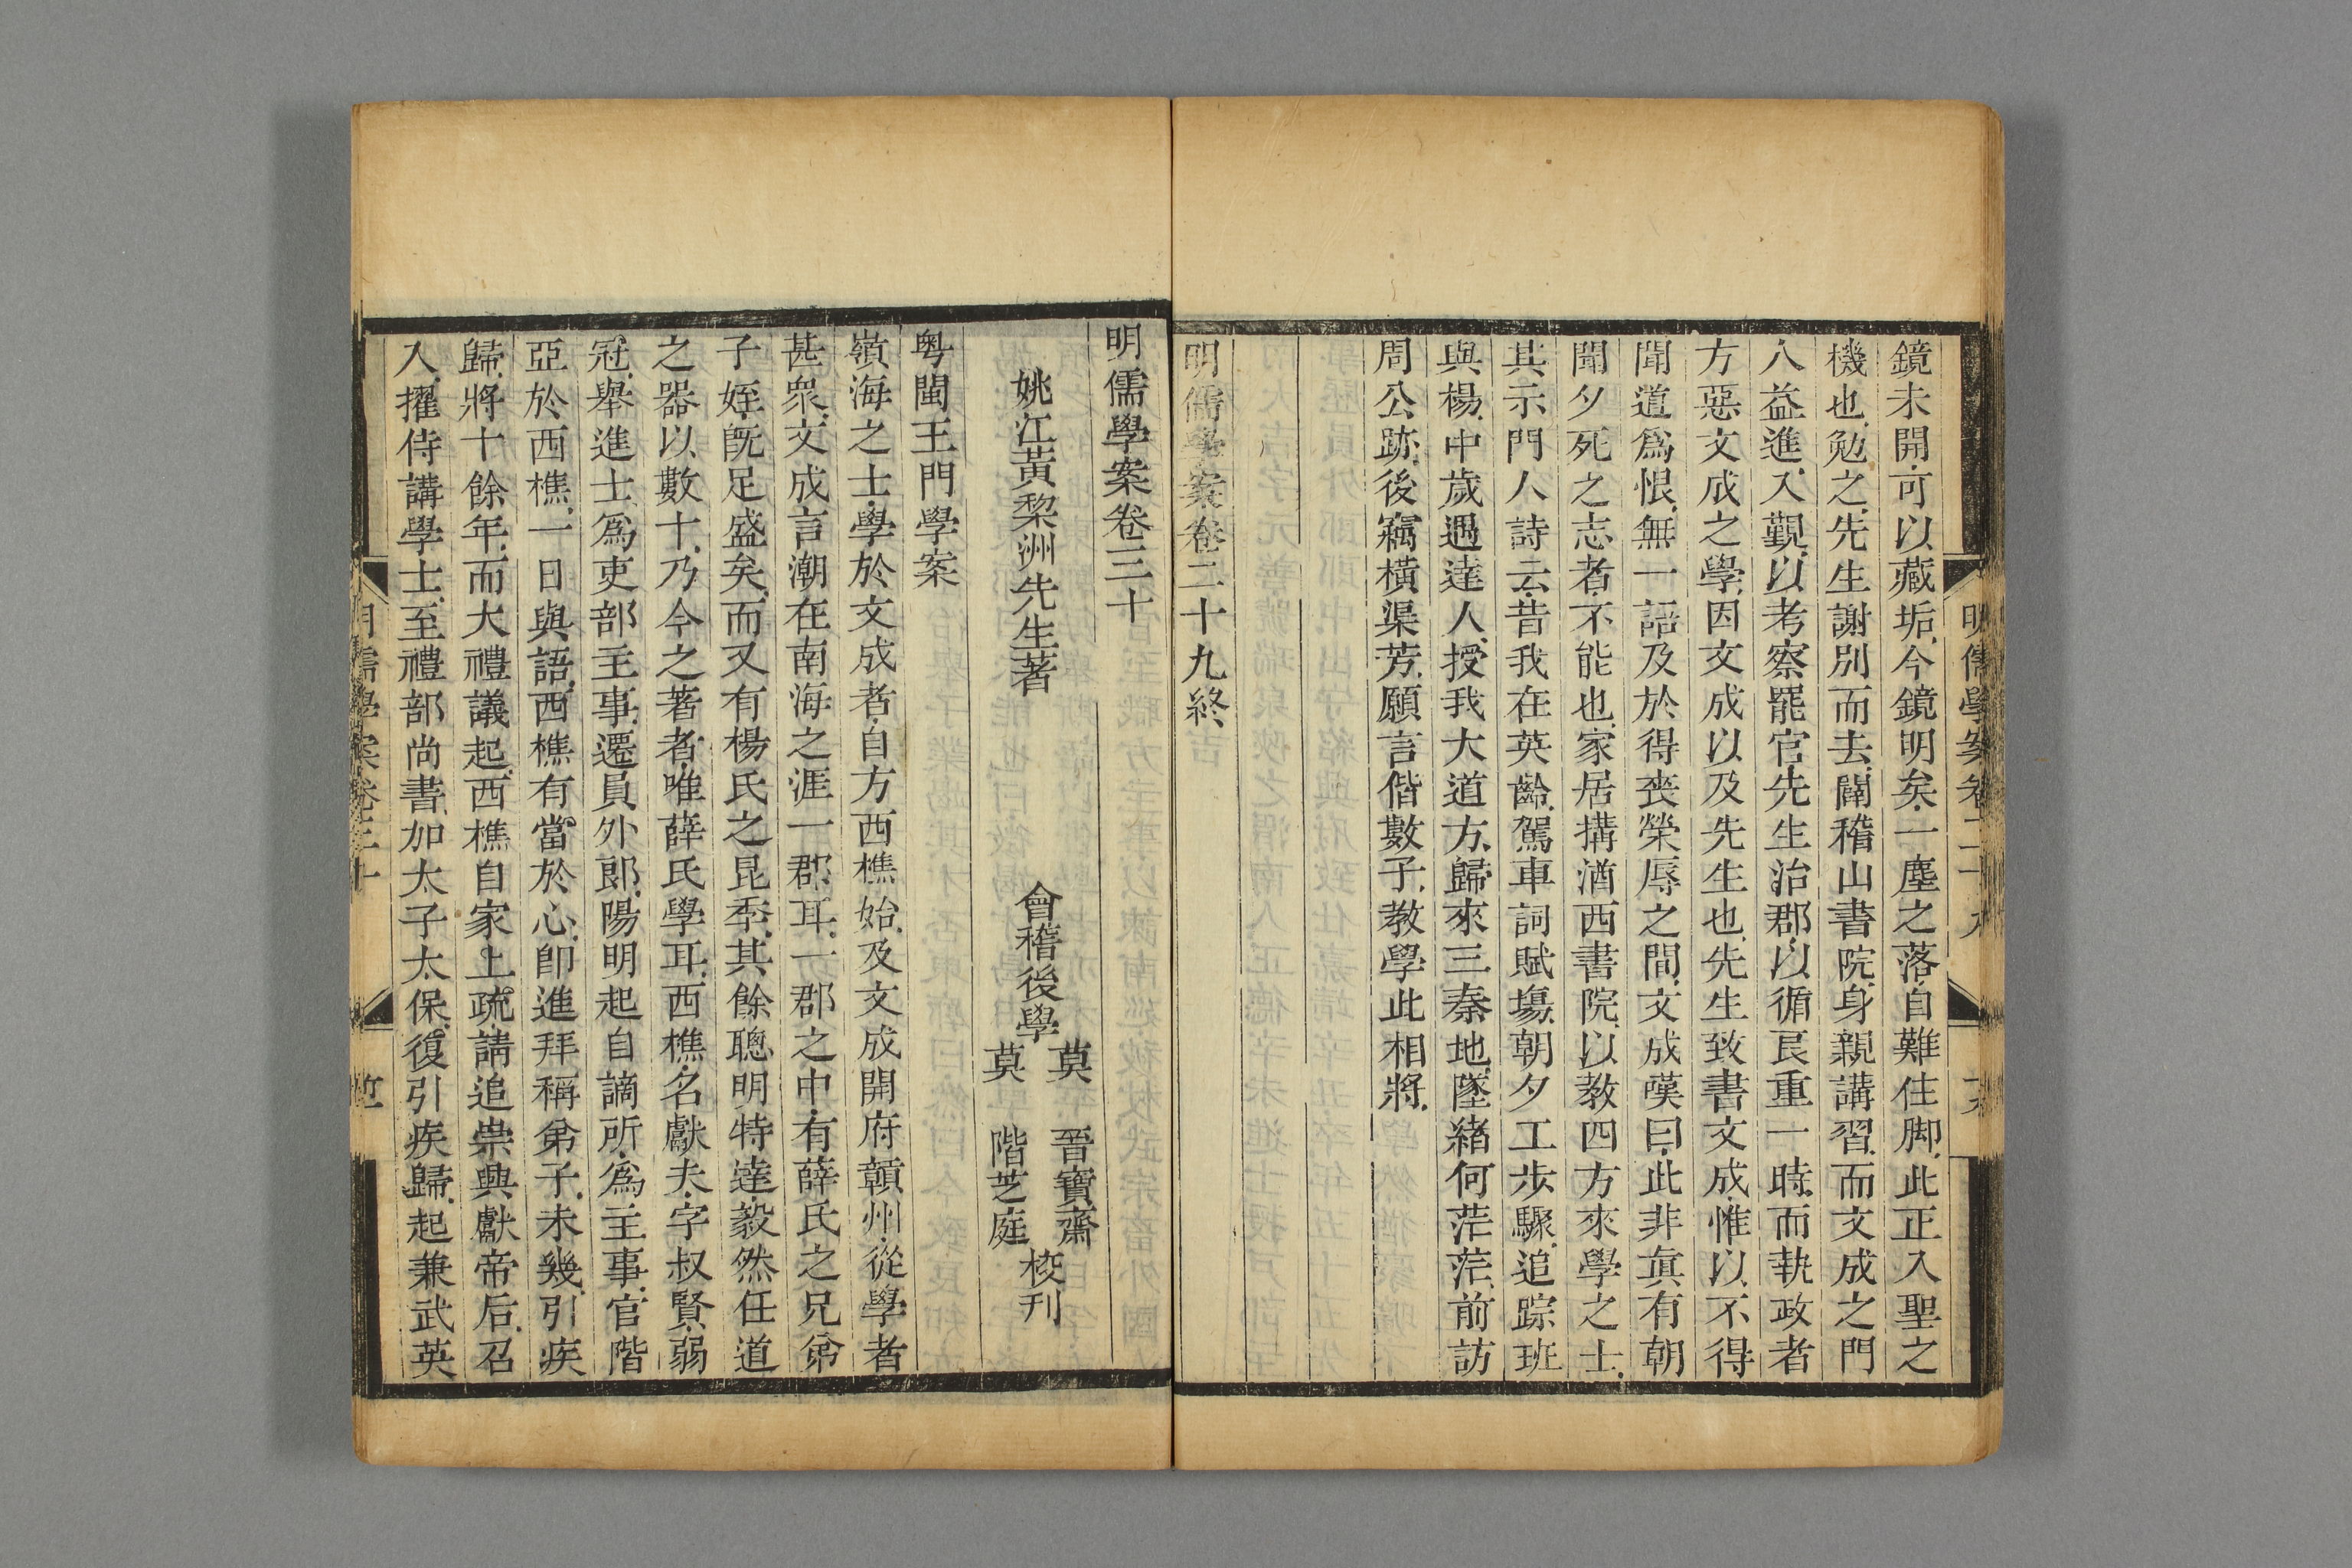 鏡未開可以藏垢今鏡明矣一塵之落自難住脚此正入聖之
機也勉之先生謝別而去闢稽山書院身親講習而文成之門
人益進入覲以考察罷官先生治郡以循良重一時而執政者
方惡文成之學因文成以及先生也先生致書文成惟以不得
聞道爲恨無一語及於得喪榮辱之間文成嘆曰此非眞有朝
聞夕死之志者不能也家居搆湭西書院以教四方來學之士
其示門人詩云昔我在英齡駕車詞賦塲朝夕工步驟追踪班
與楊中歲遇達人授我大道方歸來三秦地墜緖何茫茫前訪
周公跡後竊橫渠芳願言偕數子教學此相將
明儒學案卷二十九終
明儒學案卷二十九
明儒學案卷三十
姚江黃棃洲先生著
會稽後學
莫 晉寶齋
莫 階芝庭
校刊
粵閩王門學案
嶺海之士學於文成者自方西樵始及文成開府贛州從學者
甚衆文成言潮在南海之涯一郡耳一郡之中有薛氏之兄弟
子姪旣足盛矣而又有楊氏之昆季其餘聰明特達毅然任道
之器以數十乃今之著者唯薛氏學耳西樵名獻夫字叔賢弱
冠舉進士爲吏部主事遷員外郎陽明起自謫所爲主事官階
亞於西樵一日與語西樵有當於心卽進拜稱弟子未幾引疾
歸將十餘年而大禮議起西樵自家上疏請追崇興獻帝后召
入擢侍講學士至禮部尚書加太子太保復引疾歸起兼武英
明儒學案卷三十